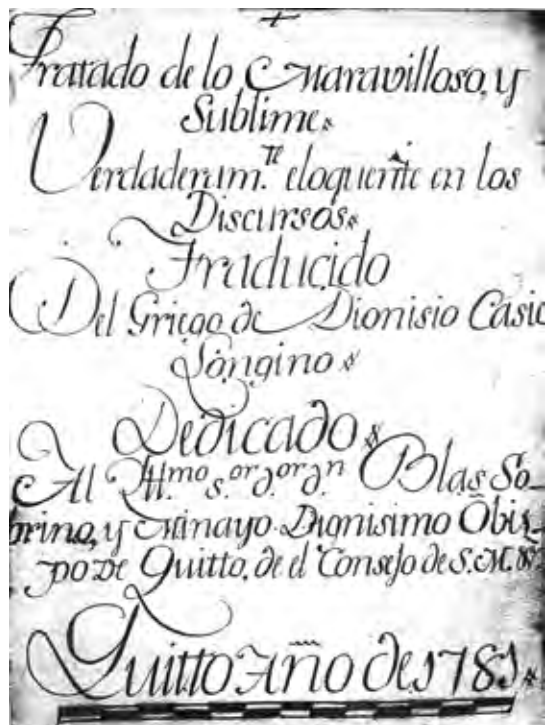 Tratado de lo Maravilloso, y
Sublime.
Verdaderam.te eloquente en los
Discursos.
Traducido
Del Griego de Dionisio Casio
Longino.
Dedicado.
Al Ill.mo s.or d.or d.n Blas So
brino, y Minayo. Dignisimo Õbis
po De Quitto, de el Consejo de S. M. &c.
Quitto Año de 1781.